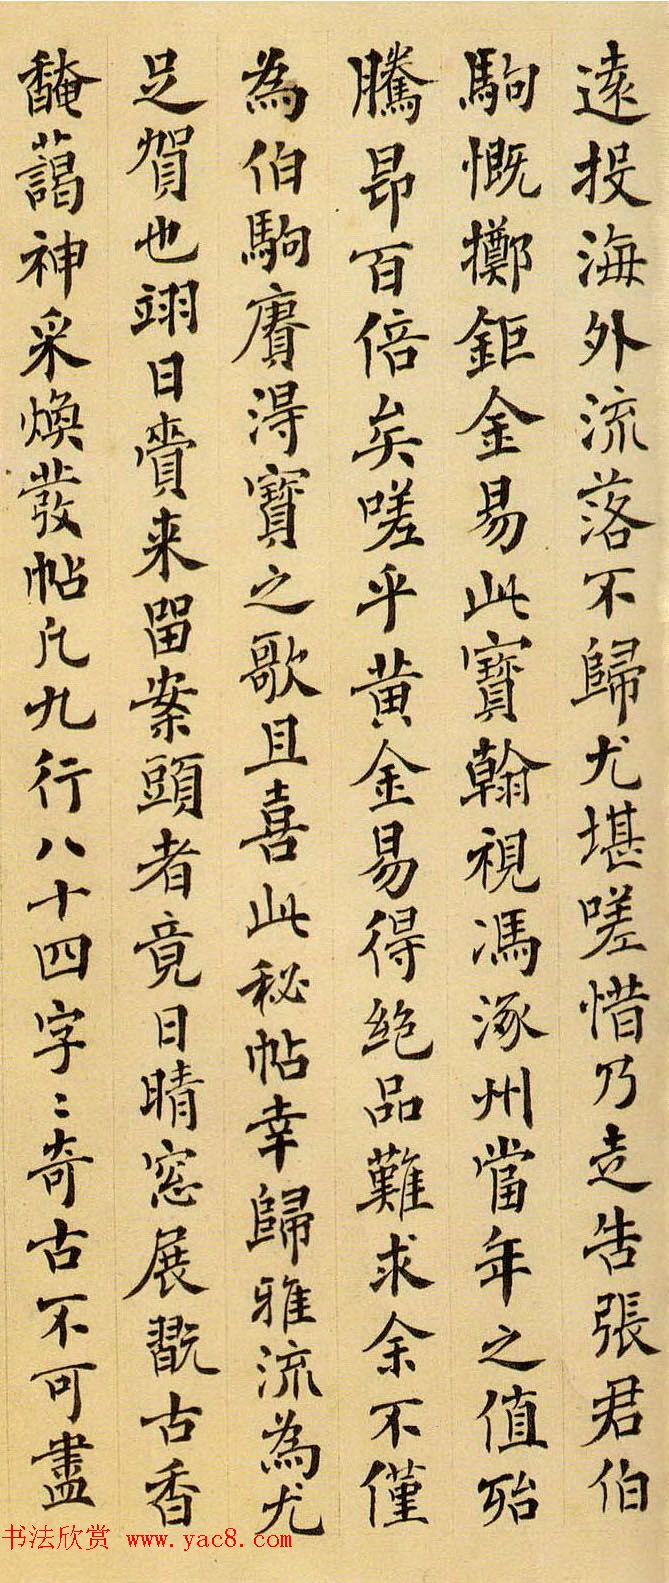 遠投海外流落不歸尤堪嗟惜乃走告張君伯
駒慨擲鉅金易此寶翰視馮涿州當年之值殆
騰昂百倍矣嗟乎黄金易得絶品難求余不僅
為伯駒賡得寶之歌且喜此秘帖幸歸雅流為尤
足賀也翊日賫来留案頭者竟日晴窓展翫古香
馣藹神采煥發帖凡九行八十四字〻奇古不可盡
书法欣赏 www.yac8.com